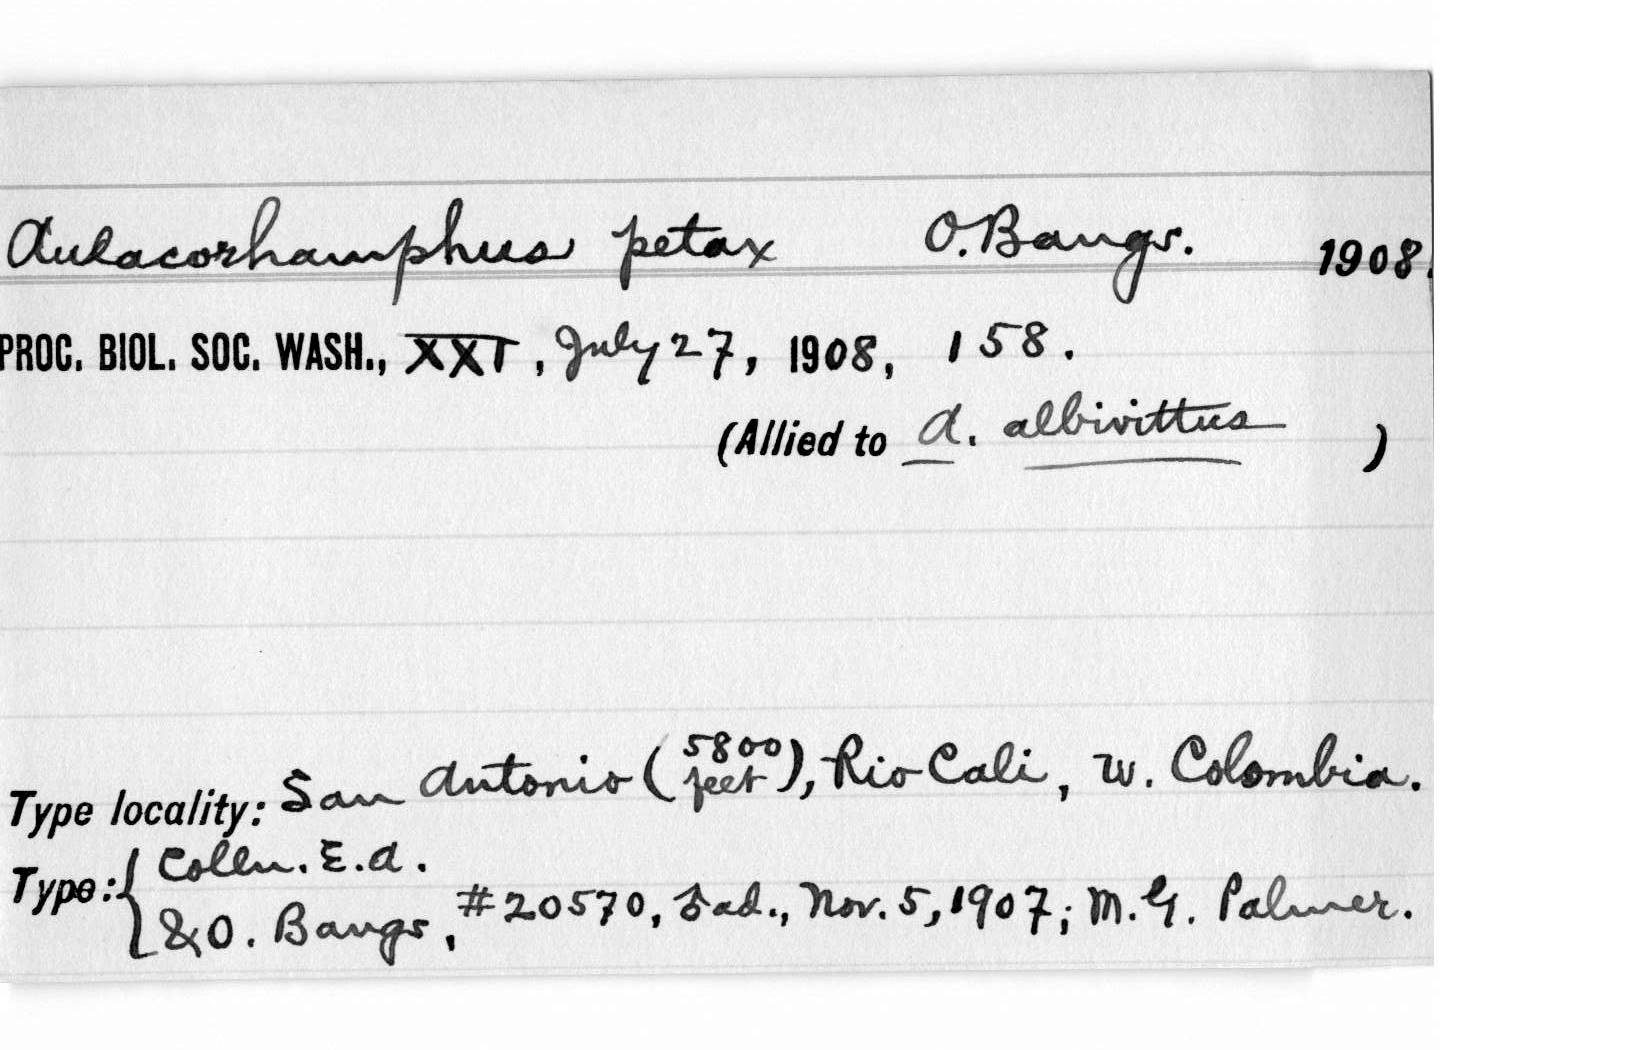 Aulacorhamphus petax O. Bangs. 1908.
PROC. BIOL. SOC. WASH., XXI, July 27, 1908, 158.
(Allied to A. albivittus )
Type locality: San Antonio (5800 feet), Rio Cali, W. Colombia.
Type: { Colln. E.A.
& O. Bangs, #20570, ♂ad., Nov. 5, 1907; M.G. Palmer.